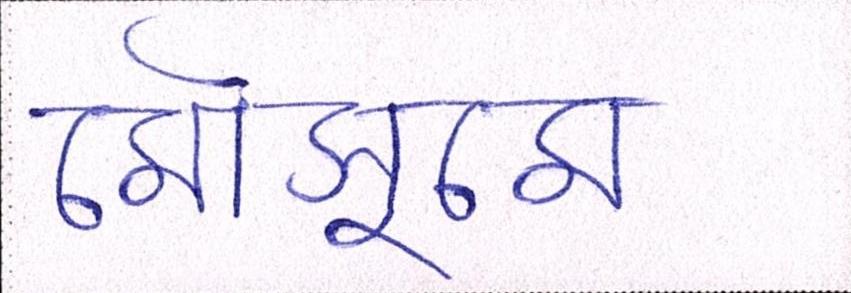 মৌসুমে